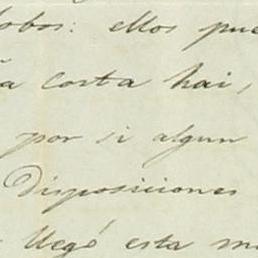 lobos: ellos pue
ña costa hai,
por si algun
Disposiciones
llegó esta ma